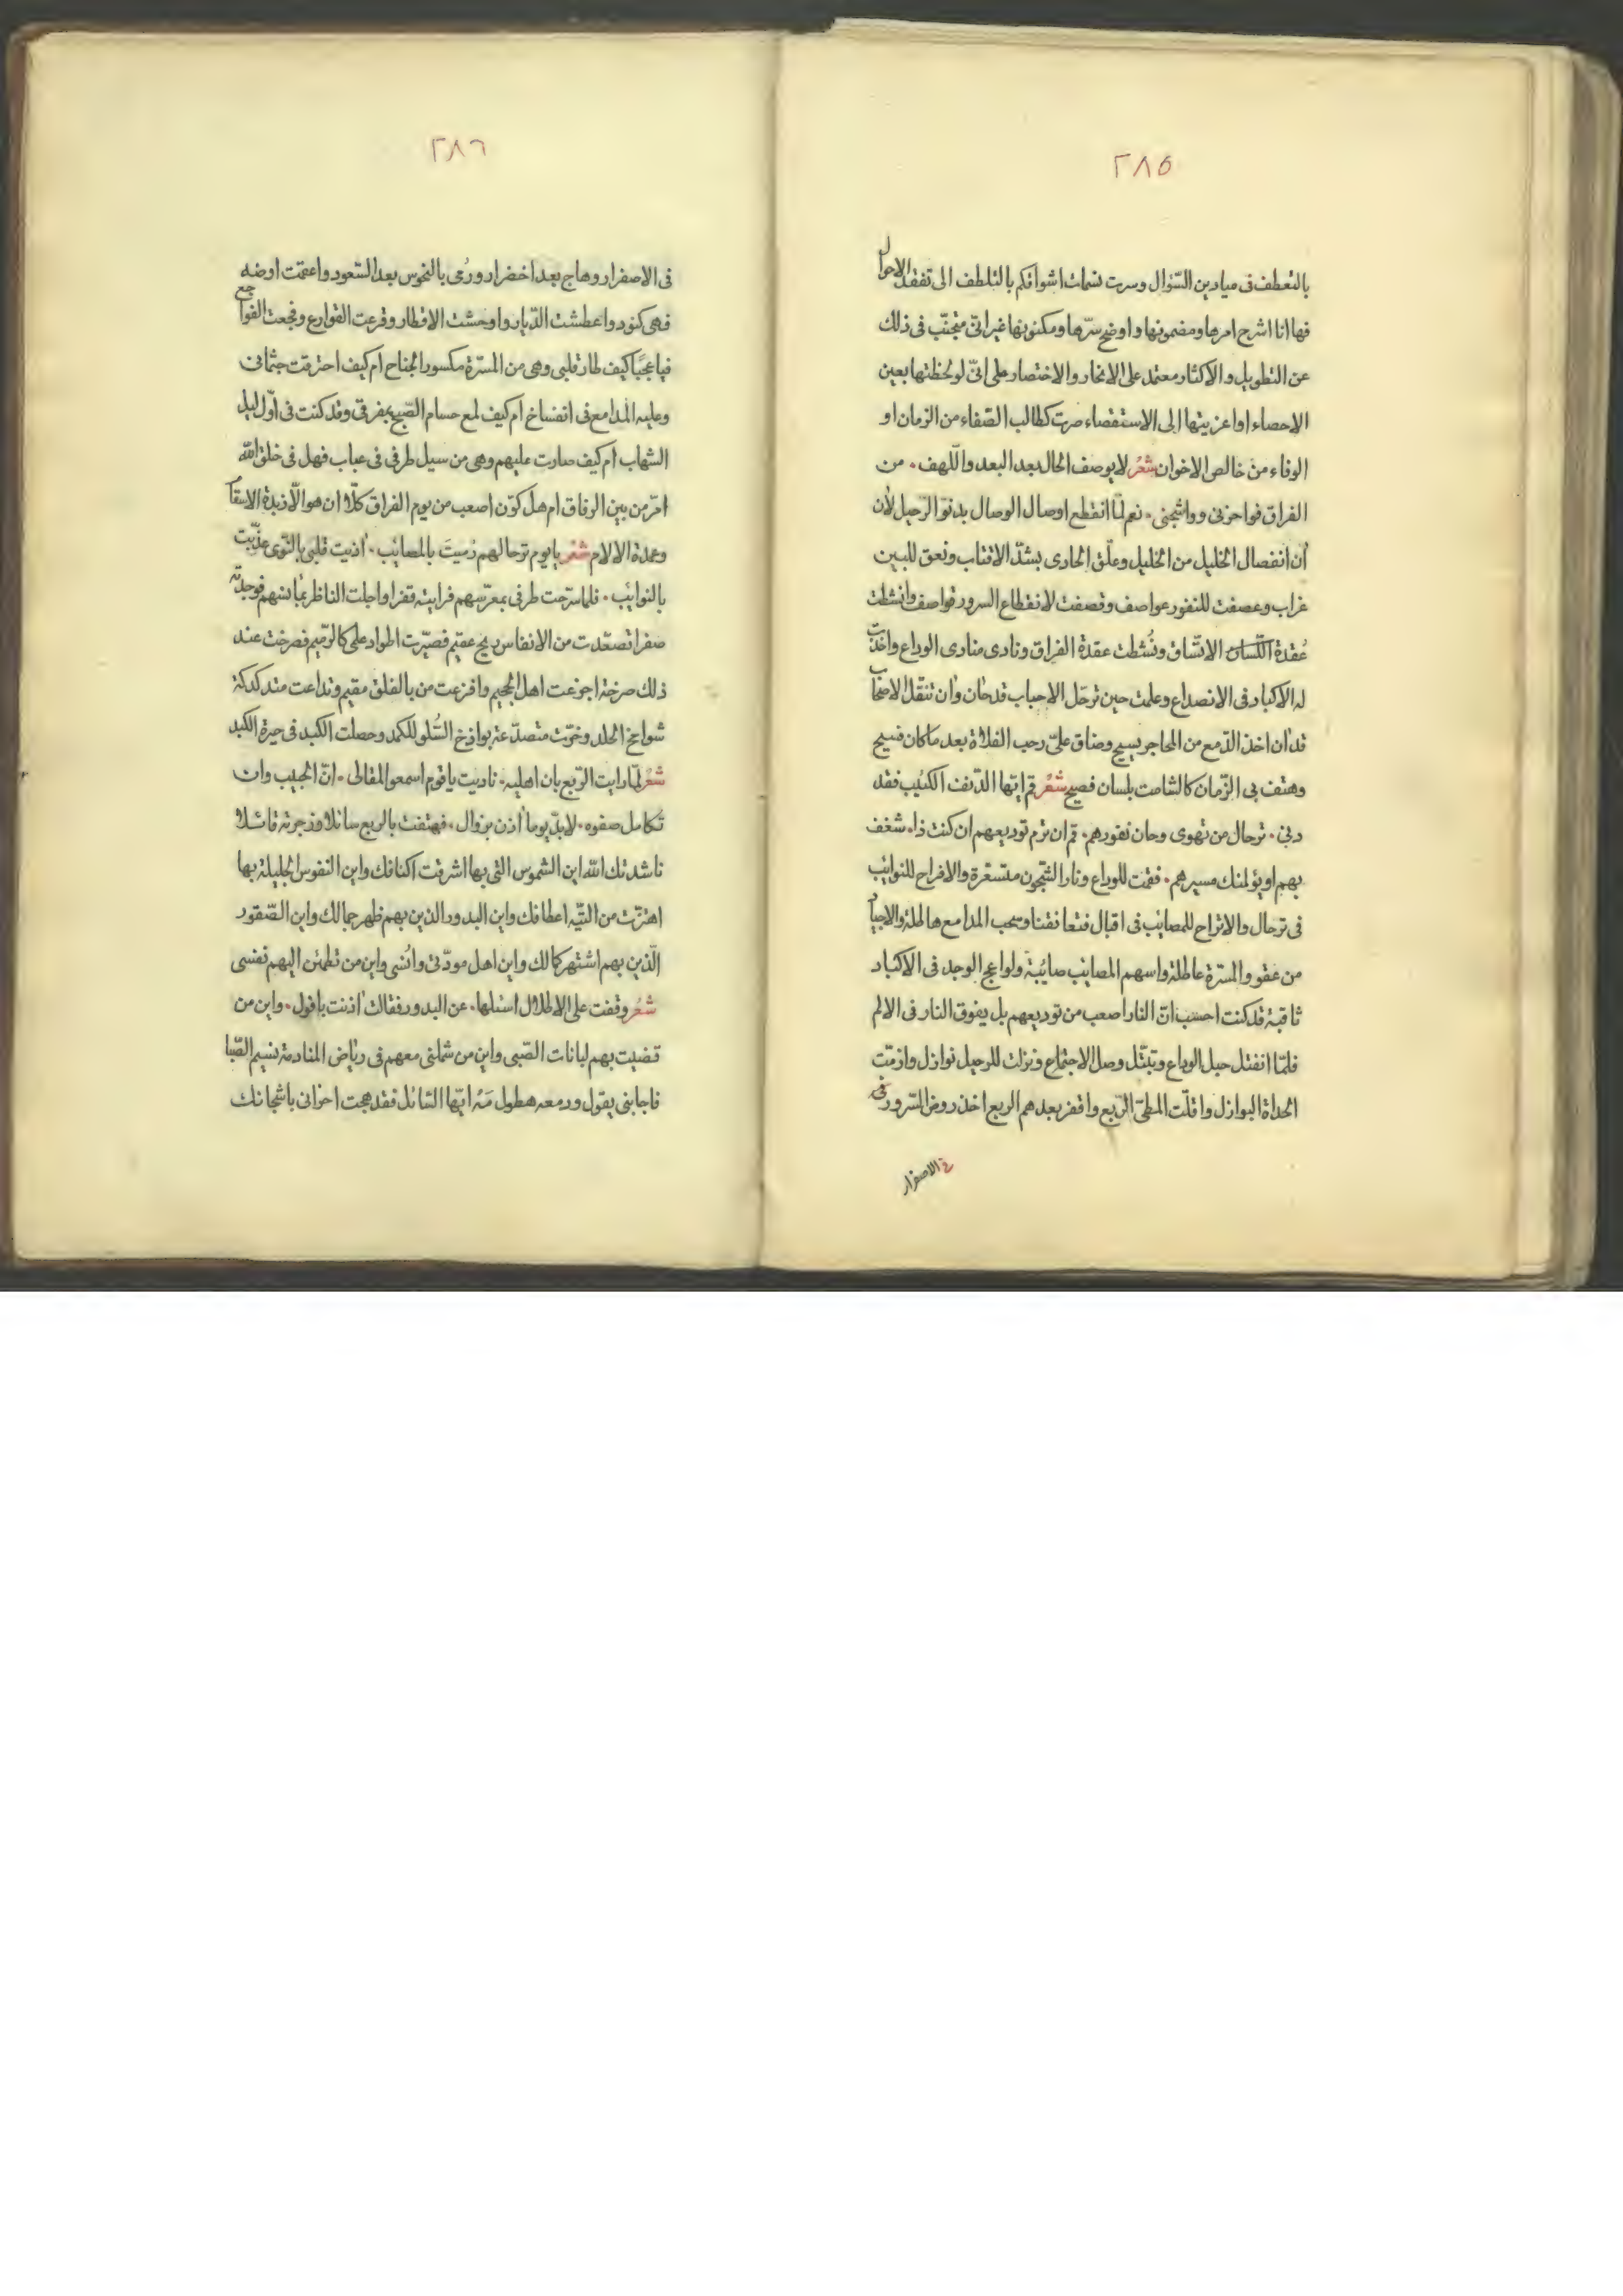 ٢٨٥
بالتعطف فى ميادين السّؤال وسرت نسمات اشواقكم بالتلطف الى تفقّد الاحوال
فها انا اشرح امرها ومضمونها واوضح سرّها ومكنونها غير انّى متجنّب فى ذلك
عن التطويل والاكثار معتمد على الايجاز والاختصار على انّى لو لحظتها بعين
الاحصاء او اعزيتها الى الاستقصاء صرت كطالب الصّفاء من الزمان او
الوفاء من خالص الاخوان شعرٌ لا يوصف الحال بعد البعد واللّهف ٠ من
الفراق فواحزنى وواشجنى ٠ نعم لمّا انقطع اوصال الوصال بدنوّ الرّحيل لأن
أن انفصال الخليل من الخليل وعلّق الحادى بشدّ الاقتاب ونعق للبين
غراب وعصفت للنفور عواصف وقصفت لانقطاع السرور قواصف وانشطت
عُقدة الاتّساق ونُشطت عقدة الفراق ونادى منادى الوداع واخذت
له الاكباد فى الانصداع وعلمت حين ترحّل الاحباب قد حان وأن تنقّل الاصحاب
قد أن اخذ الدّمع من المحاجر يسيح وضاق علىّ رحب الفلاة بعد ما كان فسيح
وهتف بى الزّمان كالشامت بلسان فصيح شعرٌ قم ايّها الدّنف الكئيب فقد
دنى ٠ ترحال من تهوى وحان نفورهم ٠ قم ان ترم توديعهم ان كنت ذا ٠ شغف
بهم او يؤلمنك مسيرهم ٠ فقمت للوداع ونار الشّجون متسعّرة والافراح للنوائب
فى ترحال والاتراح للمصائب فى اقبال فتعانقنا وسحب المدامع هاطلة والاجياد
من عقود المسرّة عاطلة واسهم المصائب صائبة ولواعج الوجد فى الاكباد
ثاقبة قد كنت احسب انّ النار اصعب من توديعهم بل يفوق النار فى الالم
فلمّا انفتل حبل الوداع وتبتّل وصل الاجتماع ونزلت للرحيل نوازل وازمّت
الحداة البوازل واقلّت المطىّ الرّبع واقفر بعدهم الربع اخذ روض السّرور فى
فى الاصفرار
٢٨٦
فى الاصفرار وهاج بعد اخضرار ورُمى بالنحوس بعد السّعود واعتمت ارضه
فهى كنود واعطشت الدّيار واوحشت الاقطار وقرعت القوارع وفجعت الفواجع
فيا عجبًا كيف طار قلبى وهى من المسرّة مكسور الجناح ام كيف احترقت جثمانى
وعليه المدامع فى انفساخ ام كيف لمع حسام الصّبح بمفرقى وقد كنت فى اوّل ليل
الشهاب ام كيف صارت عليهم وهى من سيل طرفى فى عباب فهل فى خلق الله
امرّ من بين الرفاق ام هل كوّن اصعب من يوم الفراق كلّا ان هو الّا زبدة الاسقام
وعمدة الالام شعرٌ يا يوم ترحالهم رُميتَ بالمصائب ٠ أذيت قلبى بالنّوى عذّبت
بالنوائب ٠ فلمّا سرّحت طرفى بمعرّسهم فرايته قفرا واجلت الناظر بمأنسهم فوجدته
صفرا تصعّدت من الانفاس ريح عقيم فصيّرت اطواد على كالرّميم فصرخت عند
ذلك صرخة اجزعت اهل الجحيم وافزعت من بالفلق مقيم وتداعت متدكدكة
شوامخ الجلد وخرّت متصدّعة بواذخ السّلو للكمد وحصلت الكبد فى حيرة الكبد
شعرٌ لمّا رايت الرّبع بان اهليه ٠ ناديت يا قوم اسمعوا لمقالى ٠ انّ الحبيب وان
تكامل صفوه ٠ لا بدّ يوما أذن بزوال ٠ فهتفت بالربع سائلا وزجرته قائلا
ناشدتك الله اين الشموس التى بها اشرقت اكنافك واين النفوس الجليلة بها
اهتزّت من التّيه اعطافك واين البدور الذين بهم ظهر جمالك واين الصّقور
الّذين بهم اشتهر كمالك واين اهل مودّتى وانُسى واين من تطمئن اليهم نفسى
شعرٌ وقفت على الاطلال اسئلها ٠ عن البدور فقالت أذنت بافول ٠ واين من
قضيت بهم لبانات الصّبى واين من شملنى معهم فى رياض المنادمة نسيم الصّبا
فاجابنى يقول ودمعه هطول مَهْ ايّها السّائل فقد هجت احزانى باشجانك